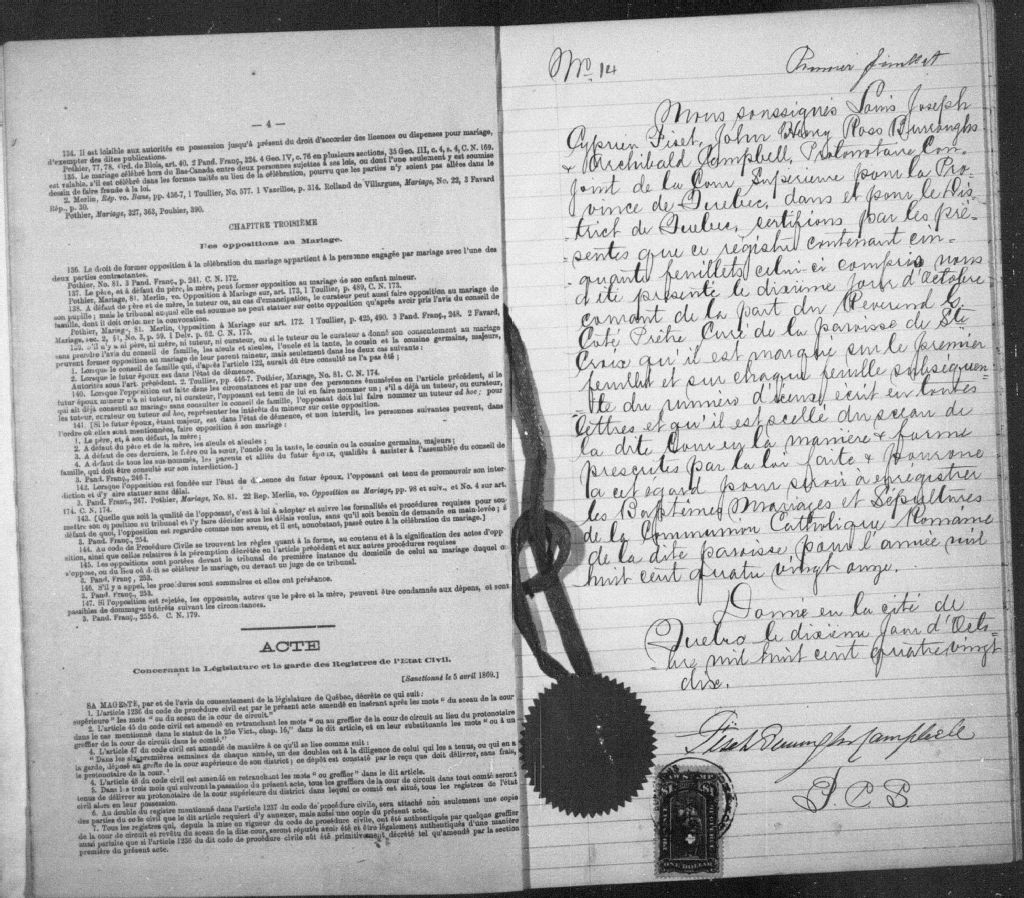 — 4 —
134. Il est loisible aux autorités en possession jusqu'à présent du droit d'accorder des licences ou dispenses pour mariage,
d'exempter des dites publications.
Pothier, 77, 78. Ord. de Blois, art. 40. 2 Pand. Franç., 324. 4 Geo. IV, c. 76 en plusieurs sections, 35 Geo. III, c. 4, s. 4, C. N. 169.
135. Le mariage célébré hors du Bas-Canada entre deux personnes sujettes à ses lois, ou dont l'une seulement y est soumise
est valable, s'il est célébré dans les formes usitées au lieu de la célébration, pourvu que les parties n'y soient pas allées dans le
dessein de faire fraude à la loi.
2. Merlin, Rép. vo. Bans, pp. 436-7, 1 Toullier, No. 577. 1 Vazeilles, p. 314. Rolland de Villargues, Mariage, No. 22, 3 Favard
Rép., p. 30.
Pothier, Mariage, 327, 363, Pouhier, 390.
CHAPITRE TROISIÈME
Des oppositions au Mariage.
136. Le droit de former opposition à la célébration du mariage appartient à la personne engagée par mariage avec l'une des
deux parties contractantes.
Pothier, No. 81. 3 Pand. Franç., p. 241. C. N. 172.
137. Le père, et à défaut du père, la mère, peut former opposition au mariage de son enfant mineur.
Pothier, Mariage, 81. Merlin, vo. Opposition à Mariage, sur art. 173, 1 Toullier, p. 489, C. N. 173.
138. A défaut de père et de mère, le tuteur ou, au cas d'émancipation, le curateur peut aussi faire opposition au mariage de
son pupille; mais le tribunal auquel elle est soumise ne peut statuer sur cette opposition qu'après avoir pris l'avis du conseil de
famille, dont il doit ordonner la convocation.
Pothier, Mariage, 81. Merlin, Opposition à Mariage sur art. 172. 1 Toullier, p. 425, 490. 3 Pand. Franç., 248. 2 Favard,
Mariage, sec. 2, §1, No. 3, p. 59. 1 Delv. p. 62. C. N. 175.
139. S'il n'y a ni père, ni mère, ni tuteur, ni curateur, ou si le tuteur ou le curateur a donné son consentement au mariage
sans prendre l'avis du conseil de famille, les aïeuls et aïeules, l'oncle et la tante, le cousin et la cousine germains, majeurs,
peuvent former opposition au mariage de leur parent mineur, mais seulement dans les deux cas suivants:
1. Lorsque le conseil de famille qui, d'après l'article 122, aurait dû être consulté ne l'a pas été;
2. Lorsque le futur époux est dans l'état de démence.
Autorités sous l'art. précédent. 2. Toullier, pp. 446-7. Pothier, Mariage, No. 81. C. N. 174.
140. Lorsque l'opposition est faite dans les circonstances et par une des personnes énumérées en l'article précédent, si le
futur époux mineur n'a ni tuteur, ni curateur, l'opposant est tenu de lui en faire nommer un; s'il a déjà un tuteur, ou curateur,
qui ait déjà consenti au mariage sans consulter le conseil de famille, l'opposant doit lui faire nommer un tuteur ad hoc; pour
les tuteur, curateur ou tuteur ad hoc, représenter les intérêts du mineur sur cette opposition.
141. [Si le futur époux, étant majeur, est dans l'état de démence, et non interdit, les personnes suivantes peuvent, dans
l'ordre où elles sont mentionnées, faire opposition à son mariage:
1. Le père, et, à son défaut, la mère;
2. A défaut du père et de la mère, les aïeuls et aïeules;
3. A défaut de ces derniers, le frère ou la sœur, l'oncle ou la tante, le cousin ou la cousine germains, majeurs;
4. A défaut de tous les sus-nommés, les parents et alliés du futur époux, qualifiés à assister à l'assemblée du conseil de
famille, qui doit être consulté sur son interdiction.]
3. Pand. Franç., 246-7.
142. Lorsque l'opposition est fondée sur l'état de démence du futur époux, l'opposant est tenu de promouvoir son inter-
diction et d'y faire statuer sans délai.
3. Pand. Franç., 247. Pothier, Mariage, No. 81. 22 Rep. Merlin, vo. Opposition au Mariage, pp. 98 et suiv., et No. 4 sur art.
174. C. N. 174.
143. [Quelle que soit la qualité de l'opposant, c'est à lui à adopter et suivre les formalités et procédures requises pour sou-
mettre son opposition au tribunal et l'y faire décider sous les délais voulus, sans qu'il soit besoin de demande en main-levée; à
défaut de quoi, l'opposition est regardée comme non avenue, et il est, nonobstant, passé outre à la célébration du mariage.]
3. Pand. Franç., 254.
144. Au code de Procédure Civile se trouvent les règles quant à la forme, au contenu et à la signification des actes d'opp-
osition, ainsi que celles relatives à la péremption décrétée en l'article précédent et aux autres procédures requises
145. Les oppositions sont portées devant le tribunal de première instance du domicile de celui au mariage duquel on
s'oppose, ou du lieu où doit se célébrer le mariage, ou devant un juge de ce tribunal.
3. Pand. Franç., 253.
146. S'il y a appel, les procédures sont sommaires et elles ont préséance.
3. Pand. Franç., 253.
147. Si l'opposition est rejetée, les opposants, autres que le père et la mère, peuvent être condamnés aux dépens, et sont
passibles de dommages intérêts suivant les circonstances.
3. Pand. Franç., 255-6. C. N. 179.
ACTE
Concernant la Législature et la garde des Registres de l'Etat Civil.
[Sanctionné le 5 avril 1869.]
SA MAGESTÉ, par et de l'avis du consentement de la législature de Québec, décrète ce qui suit:
1. L'article 1236 du code de procédure civil est par le présent acte amendé en insérant après les mots " du sceau de la cour
supérieure " les mots " ou du sceau de la cour de circuit."
2. L'article 45 du code civil est amendé en retranchant les mots " ou au greffier de la cour de circuit au lieu du protonotaire
dans le cas mentionné dans le statut de la 25e Vict., chap. 16," dans le dit article, et en leur substituant les mots " ou à un
greffier de la cour de circuit dans le comté."
4. L'article 47 du code civil est amendé de manière à ce qu'il se lise comme suit:
" Dans les six premières semaines de chaque année, un des doubles est à la diligence de celui qui les a tenus, ou qui en a
la garde, déposé au greffe de la cour supérieure de son district; ce dépôt est constaté par le reçu que doit délivrer, sans frais,
le protonotaire de la cour."
4. L'article 48 du code civil est amendé en retranchant les mots " ou greffier " dans le dit article.
5. Dans les trois mois qui suivront la passation du présent acte, tous les greffiers de la cour de circuit dans tout comté seront
tenus de délivrer au protonotaire de la cour supérieure du district dans lequel ce comté est situé, tous les registres de l'état
civil alors en leur possession.
6. Au double du registre mentionné dans l'article 1237 du code de procédure civile, sera attaché non seulement une copie
des parties du code civil que le dit article requiert d'y annexer, mais aussi une copie du présent acte.
7. Tous les registres qui, depuis la mise en vigueur du code de procédure civile, ont été authentiqués par quelque greffier
de la cour de circuit et revêtu du sceau de la dite cour, seront réputés avoir été et être légalement authentiqués d'une manière
aussi parfaite que si l'article 1236 du dit code de procédure civile eût été primitivement décrété tel qu'amendé par la section
première du présent acte.
No. 14
Premier feuillet
Nous soussignés Louis Joseph
Cyprien Fiset, John Henry Ross Burroughs
& Archibald Campbell, Protonotaire Con-
joint de la Cour Supérieure pour la Pro-
vince de Québec, dans et pour le Dis-
trict de Québec, certifions par les pré-
sentes que ce régistre contenant cin-
quante feuillets celui-ci compris nous
a été présenté le dixième jour d'octobre
courant de la part du Révérend L.
Coté Prêtre Curé de la paroisse de Ste
Croix qu'il est marqué sur le premier
feuillet et sur chaque feuille subséquen-
te du numéro d'iceux écrit en toutes
lettres et qu'il est scellé du sceau de
la dite Cour en la manière & forme
prescrites par la loi faite & pourvue
à cet égard pour servir à enrégistrer
les Baptêmes Mariages et Sépultures
de la Communion Catholique Romaine
de la dite paroisse pour l'année mil
huit cent quatre vingt onze.
Donné en la cité de
Québec le dixième jour d'Octo-
bre mil huit cent quatre vingt
dix.
Fiset Burroughs Campbell
P. C. S
LAW STAMP
ONE DOLLAR